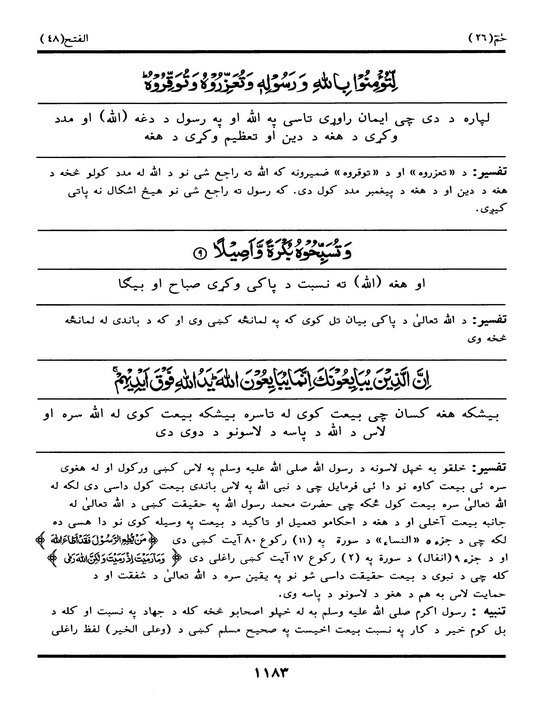 حٰمٓ(۲۶)
الفتح(۴۸)
لِّتُؤْمِنُوْا بِاللّٰهِ وَ رَسُوْلِهٖ وَ تُعَزِّرُوْهُ وَ تُوَقِّرُوْهُ ؕ
لپاره د دی چی ایمان راوړی تاسی په الله او په رسول د دغه (الله) او مدد
وکړی د هغه د دین او تعظیم وکړی د هغه
تفسیر: د «تعزروه» او د «توقروه» ضمیرونه که الله ته راجع شی نو د الله له مدد کولو څخه د
هغه د دین او د هغه د پیغمبر مدد کول دی. که رسول ته راجع شی نو هیڅ اشکال نه پاتی
کیږی.
وَ تُسَبِّحُوْهُ بُكْرَةً وَّ اَصِيْلًا ﴿۹﴾
او هغه (الله) ته نسبت د پاکی وکړی صباح او بیګا
تفسیر: د الله تعالیٰ د پاکی بیان تل کوی که په لمانځه کښی وی او که د باندی له لمانځه
څخه وی
اِنَّ الَّذِيْنَ يُبَايِعُوْنَكَ اِنَّمَا يُبَايِعُوْنَ اللّٰهَ ؕ يَدُ اللّٰهِ فَوْقَ اَيْدِيْهِمْ ۚ
بیشکه هغه کسان چی بیعت کوی له تاسره بیشکه بیعت کوی له الله سره او
لاس د الله د پاسه د لاسونو د دوی دی
تفسیر: خلقو به خپل لاسونه د رسول الله صلی الله علیه وسلم په لاس کښی ورکول او له هغوی
سره ئی بیعت کاوه نو دا ئی فرمایل چی د نبی الله په لاس باندی بیعت کول داسی دی لکه له
الله تعالیٰ سره بیعت کول ځکه چی حضرت محمد رسول الله په حقیقت کښی د الله تعالیٰ له
جانبه بیعت آخلی او د هغه د احکامو تعمیل او تاکید د بیعت په وسیله کوی نو دا هسی ده
لکه چی د جزء ۵ «النساء» د سورة په (۱۱) رکوع ۸۰ آیت کښی دی ﴿مَنْ يُّطِعِ الرَّسُوْلَ فَقَدْ اَطَاعَ اللّٰهَ﴾
او د جزء ۹ (انفال) د سورة په (۲) رکوع ۱۷ آیت کښی راغلی دی ﴿وَمَا رَمَيْتَ اِذْ رَمَيْتَ وَلٰكِنَّ اللّٰهَ رَمٰى﴾
کله چی د نبوی د بیعت حقیقت داسی شو نو په یقین سره د الله تعالیٰ د شفقت او د
حمایت لاس به هم د هغو د لاسونو د پاسه وی.
تنبیه : رسول اکرم صلی الله علیه وسلم به له خپلو اصحابو څخه کله د جهاد په نسبت او کله د
بل کوم خیر د کار په نسبت بیعت اخیست په صحیح مسلم کښی د (وعلی الخیر) لفظ راغلی
۱۱۸۳